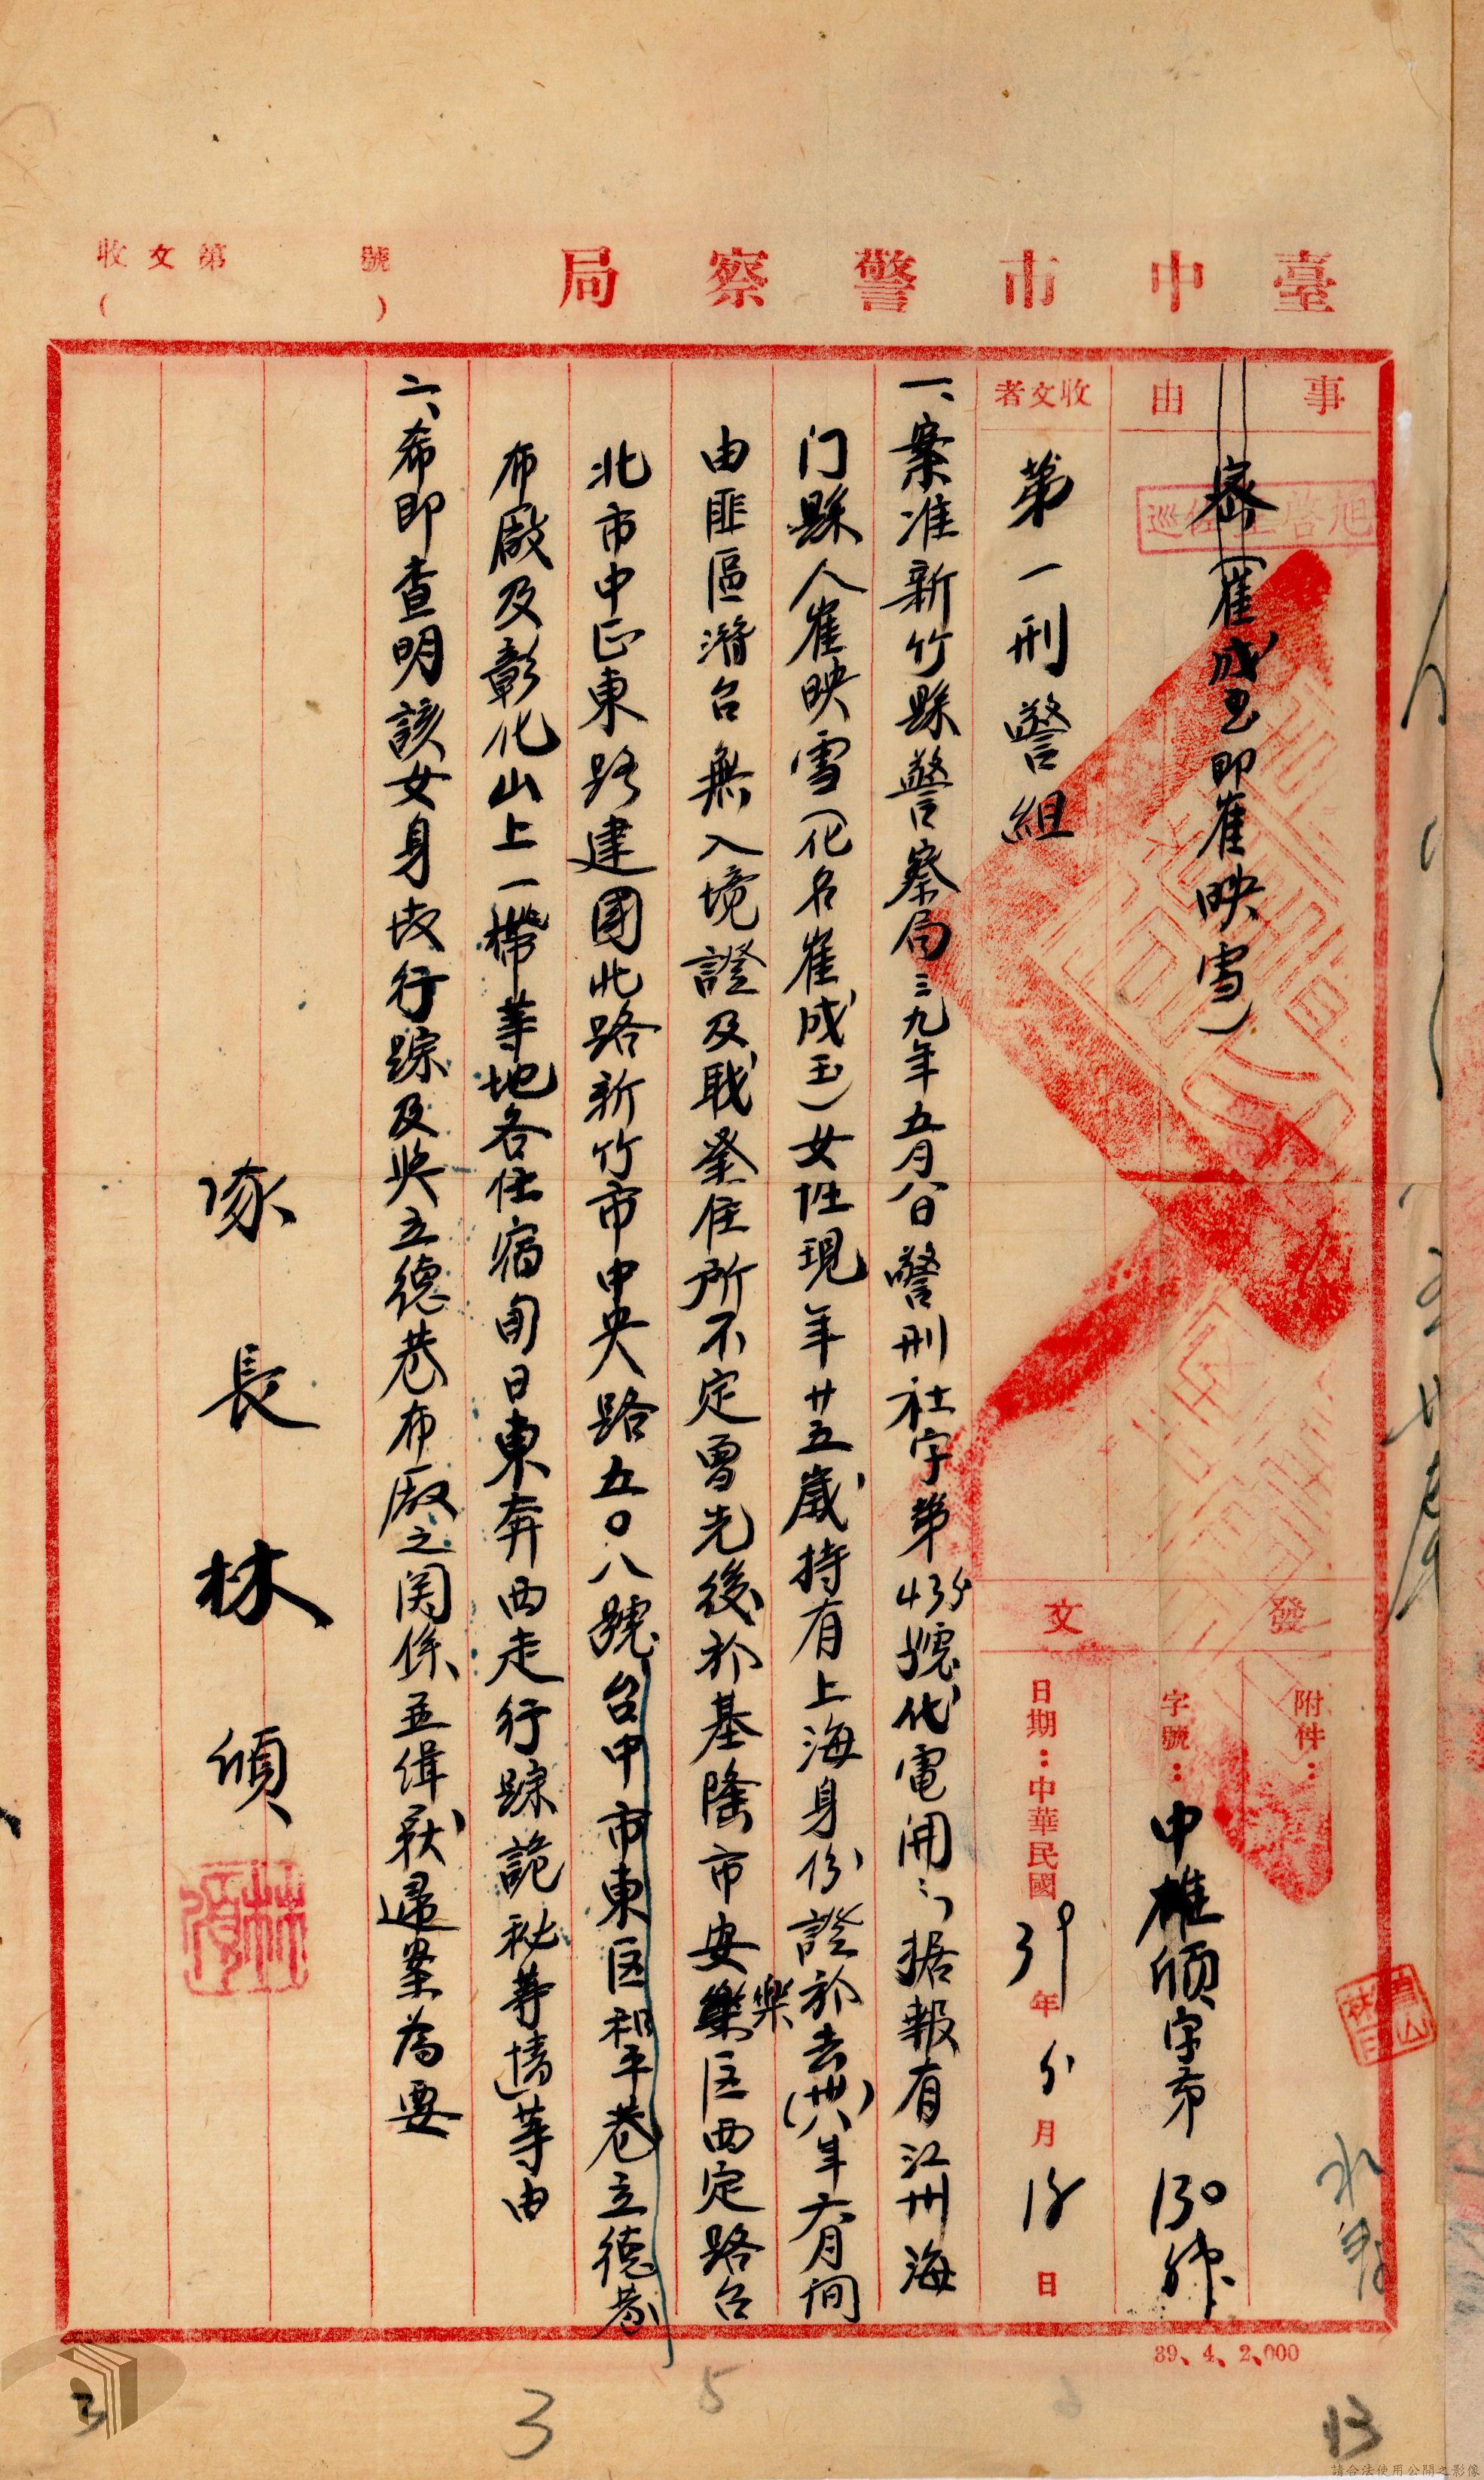 臺中市警察局
收文第 號
( )
事由
密(崔成玉即崔映雪)
收文者
第一刑警組
發文
附件：
字號：中雄頎字第130號
日期：中華民國39年5月15日
一、案准新竹縣警察局三九年五月八日警刑社字第435號代電開：「据報有江州海
门縣人崔映雪(化名崔成玉)女性現年廿五歲持有上海身份證於去(卅八)年六月间
由匪區潛台無入境證及職業住所不定曾先後於基隆市安樂区西定路台
北市中正東路建國北路新竹市中央路五〇八號台中市東区和平巷立德巷
布廠及彰化山上一帶等地各住宿旬日東奔西走行踪詭秘等情等由
二、希即查明該女身份行踪及與立德巷布廠之関係並緝获歸案為要
局長林頎
39、4、2,000
3
3
5
13
請合法使用公開之影像